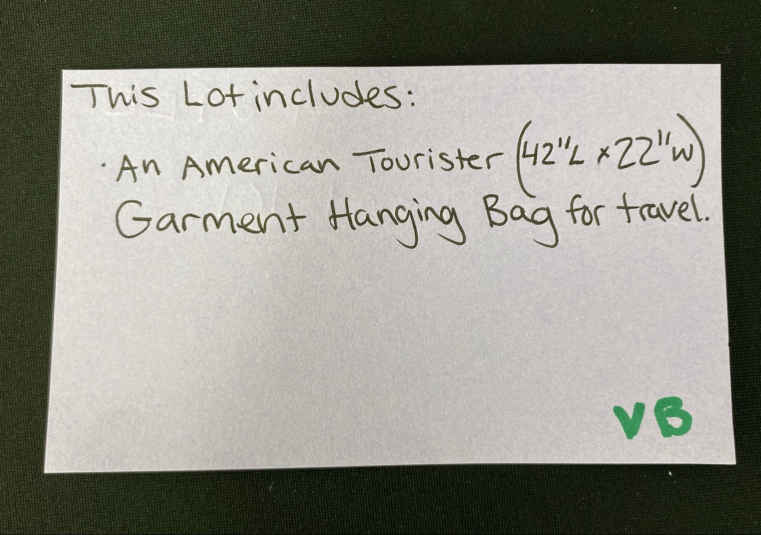 This Lot includes:
· An American Tourister (42"L x 22"W)
Garment Hanging Bag for travel.
VB